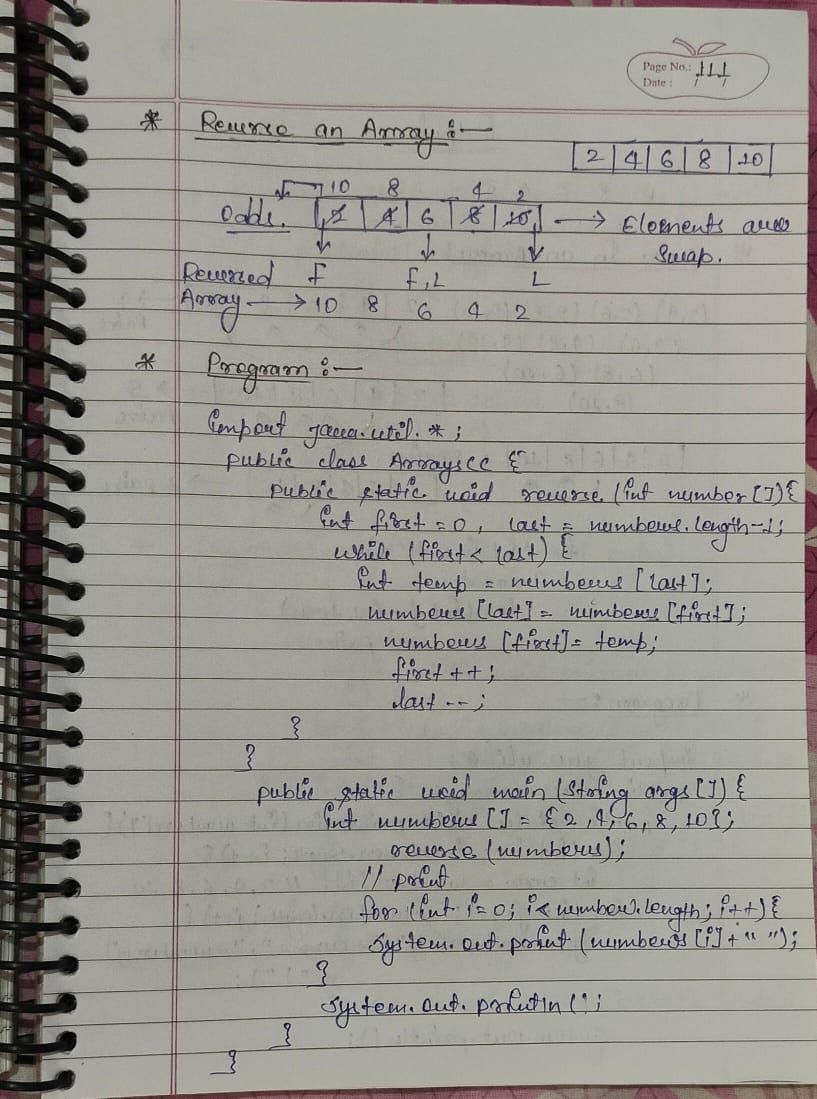 Page No.: 111
Date :
* Reverse an Array :-
2 4 6 8 10
10 8 4 2
Odds. 2 4 6 8 10 → Elements are
Swap.
Reversed F F,L L
Array → 10 8 6 4 2
* Program :-
import java.util.*;
public class Arrayscc {
public static void reverse (int number []){
int first = 0, last = numbers.length-1;
while (first < last) {
int temp = numbers [last];
numbers [last] = numbers [first];
numbers [first] = temp;
first ++;
last --;
}
}
public static void main (String args []) {
int numbers [] = {2, 4, 6, 8, 10};
reverse (numbers);
// print
for (int i=0; i< number.length; i++){
System.out.print (numbers [i] + " ");
}
System.out.println (';
}
}